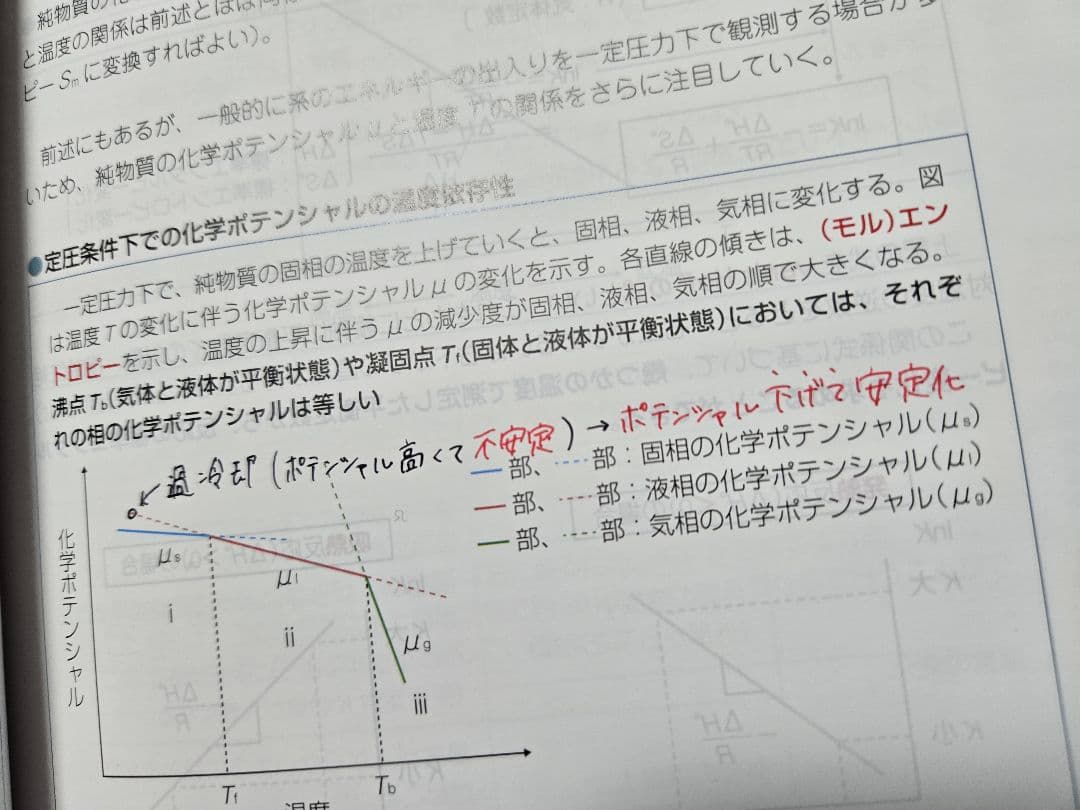 純物質の
と温度の関係は前述とほぼ同
ピー Sm に変換すればよい）。
前述にもあるが、一般的に系のエネルギーの出入りを一定圧力下で観測する場合が多
いため、純物質の化学ポテンシャル μ と温度 T の関係をさらに注目していく。
●定圧条件下での化学ポテンシャルの温度依存性
一定圧力下で、純物質の固相の温度を上げていくと、固相、液相、気相に変化する。図
は温度 T の変化に伴う化学ポテンシャル μ の変化を示す。各直線の傾きは、（モル）エン
トロピーを示し、温度の上昇に伴う μ の減少度が固相、液相、気相の順で大きくなる。
沸点 Tb（気体と液体が平衡状態）や凝固点 Tf（固体と液体が平衡状態）においては、それぞ
れの相の化学ポテンシャルは等しい
過冷却（ポテンシャル高くて不安定）→ ポテンシャル下げて安定化
部、 部：固相の化学ポテンシャル（μs）
部、 部：液相の化学ポテンシャル（μl）
部、 部：気相の化学ポテンシャル（μg）
化学ポテンシャル
μs
μl
μg
i
ii
iii
Tf
Tb
温度